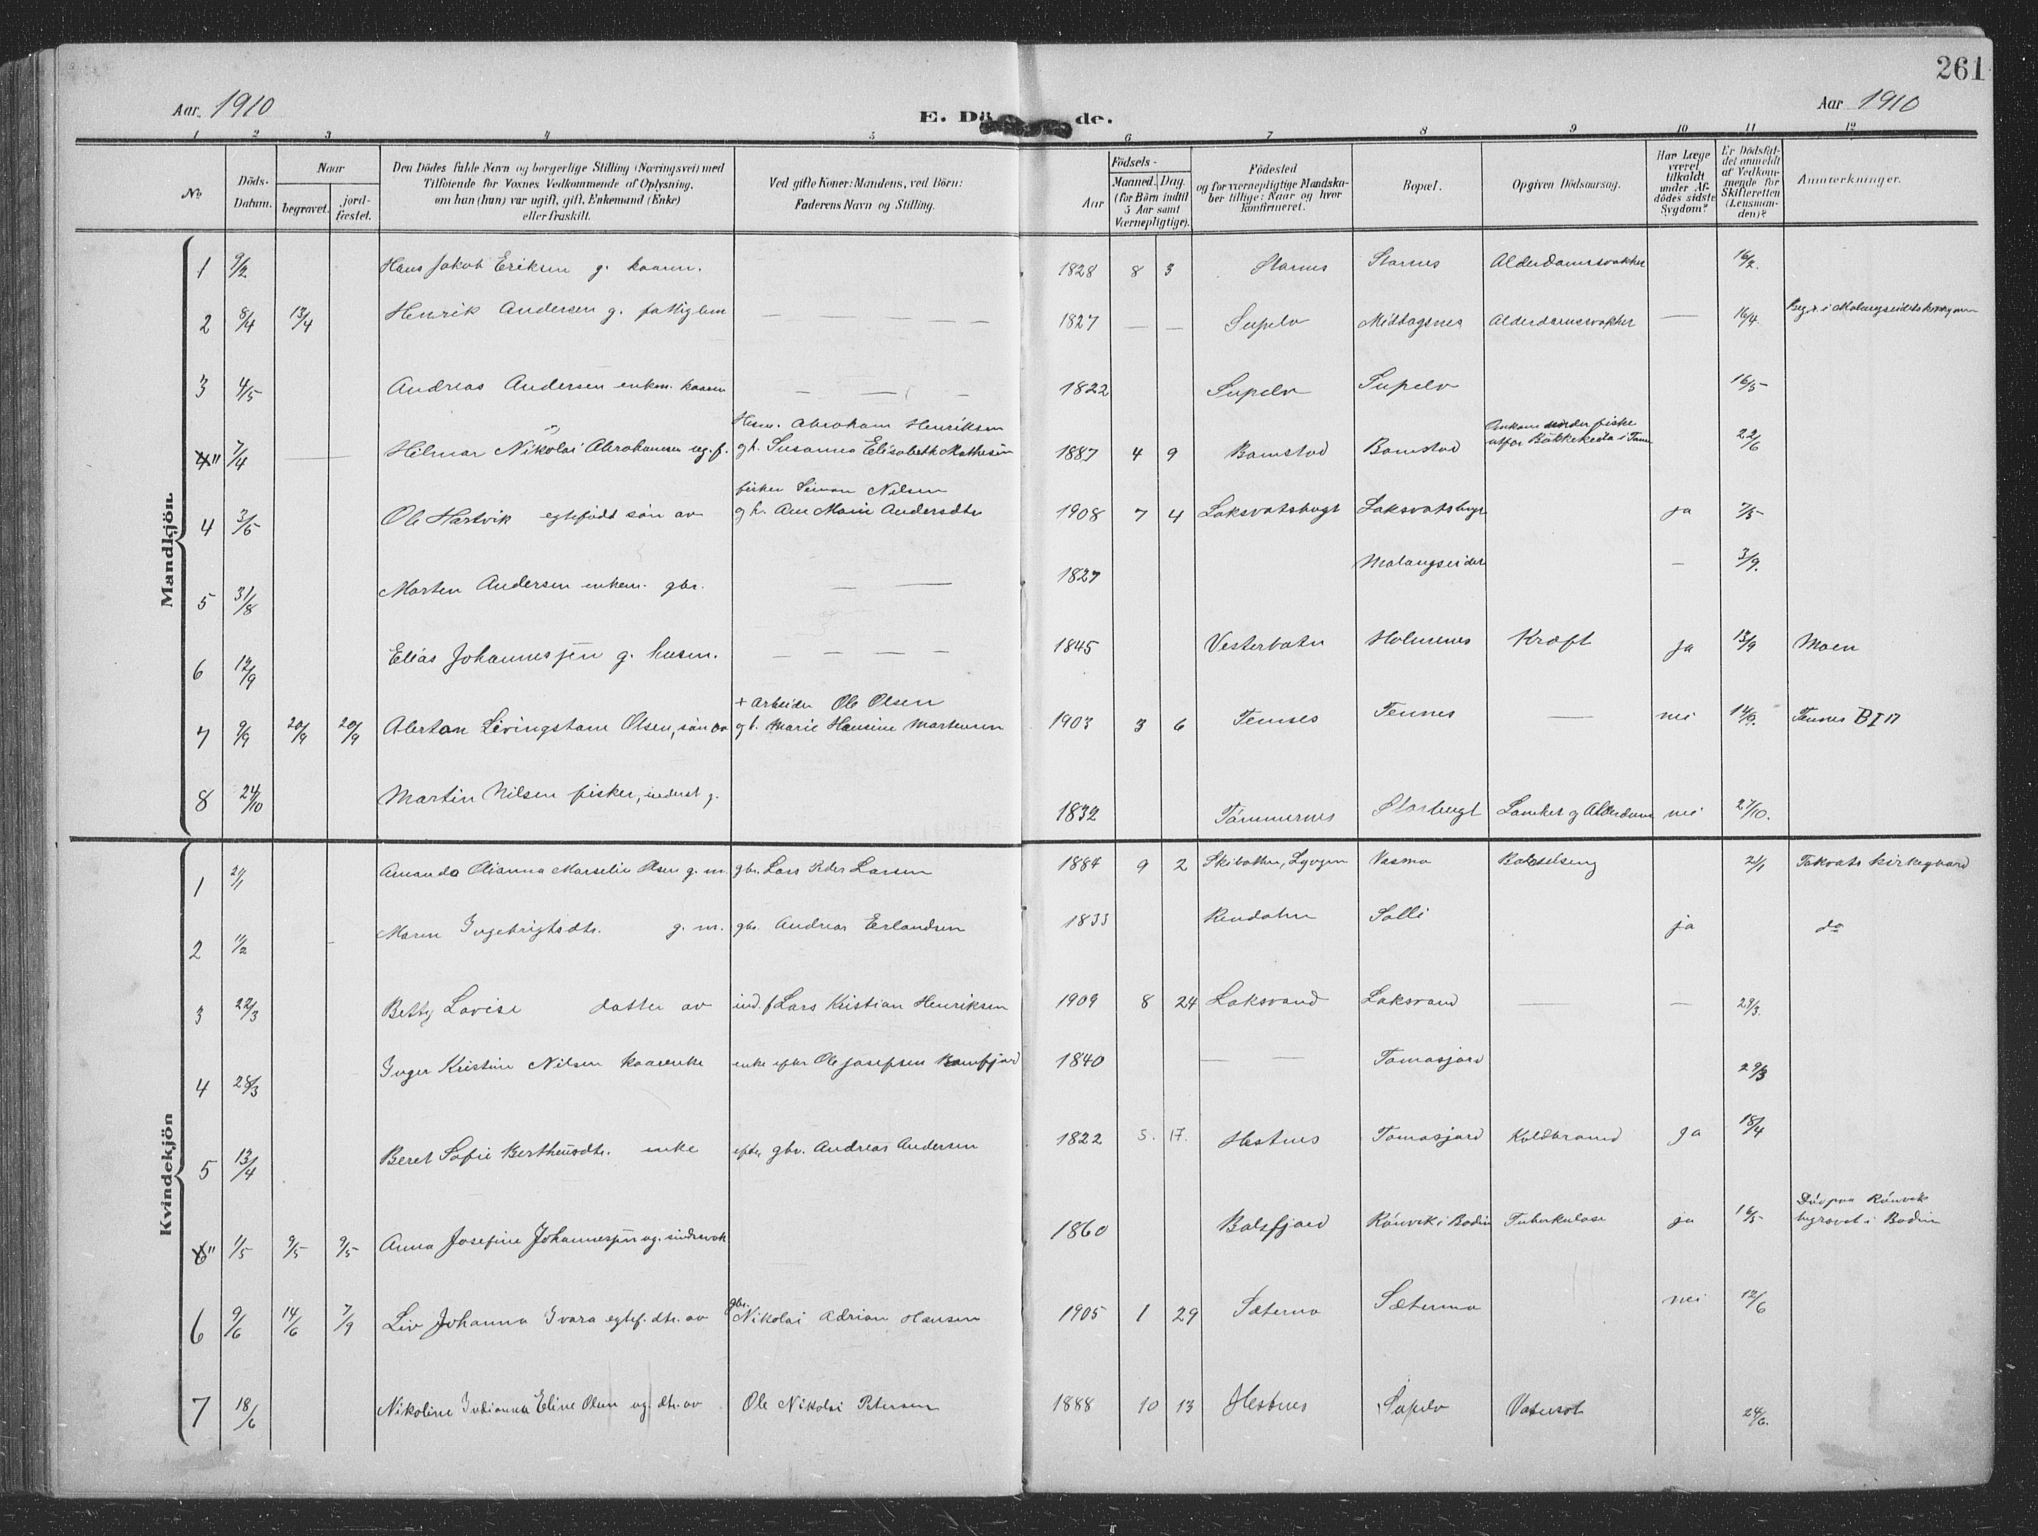 261
Aar 1910 E. Dö de. Aar 1910
1 2 3 4 5 6 7 8 9 10 11 12
No
Döds-Datum.
Naar
begravet.
jord-fæstet.
Den Dödes fulde Navn og borgerlige Stilling (Næringsvei) med
Tilföiende for Voxnes Vedkommende af Oplysning,
om han (hun) var ugift, gift, Enkemand (Enke)
eller fraskilt.
Ved gifte Koner: Mandens, ved Börn:
Faderens Navn og Stilling.
Födsels-
Aar
Maaned. Dag.
(for Börn indtil
5 Aar samt
Værnepligtige).
Födested
og for værnepligtige Mandska-
ber tillige: Naar og hvor
konfirmeret.
Bopæl.
Opgiven Dödsaarsag.
Har Læge
været
tilkaldt
under Af-
dödes sidste
Sygdom?
Er Dödsfal-
det anmeldt
af Vedkom-
mende for
Skifteretten
(Lensman-
den)?
Anmærkninger.
Mandkjön.
1 9/2 Hans Jakob Eriksen g. kaarm. 1828 8 3 Starnes Starnes Alderdomssvækker 16/2.
2 8/4 13/4 Henrik Andersen g. fattiglem — — — — 1827 — — Supelv Middagsnes Alderdomssvækker — 16/4. Begr. i
3 4/5 Andreas Andersen enkem. kaarm — — — 1822 Supelv Supelv 16/5
4" 7/4 — — Hilmar Nikolai Abrahamsen ug. f. Husm. Abraham Henriksen
og h. Susanna Elisabeth Mathesen 1887 4 9 Bomstad Bomstad Omkom under fiske
utfor Båtskeda i Tana 22/6
4 3/5 Ole Hartvik egtefödt sön av fisker Simon Nilsen
og h. Ane Marie Andersdtr 1908 7 4 Laksvatsbugt Laksvatsbugt ja 7/5
5 31/8 Morten Andersen enkem. gbr. — — 1827 Malangseidet — 3/9.
6 12/9 Elias Johannesjen g. husm. — — — — 1845 Vesterbotn Holmenes Kræft ja 13/9 Moen
7 9/9 20/9 20/9 Alerton Livingstane Olsen, sön av + Arbeider Ole Olsen
og h. Marie Hansine Martensen 1903 3 6 Tennes Tennes — nei 14/9. Tennes B I 17
8 24/10 Martin Nilsen fisker, inderst g. 1832 Tømmernes Starbugt Lamhet og Alderdom nei 27/10.
Kvindekjön
1 2/1 Amanda Olianna Marselie Olsen g. m. gbr. Lars Peder Larsen 1884 9 2 Skibotten, Lyngen Nesmo 21/1 Takvats kirkegaard
2 11/2 Maren Ingebrigtsdtr. g. m. gbr. Andreas Erlandsen 1833 Rendalen Solli ja do
3 22/3 Betty Lovise datter av ind. f Lars Kristian Henriksen 1909 8 24 Laksvand Laksvand — — 29/3.
4 28/3 Inger Kristine Nilsen kaarenke enke efter Ole Josefsen Ramfjord 1840 — — Tomasjord 29/3
5 13/4 Beret Sofie Berthensdtr. enke efter gbr. Andreas Andersen 1822 5. 17. Hestnes Tomasjord Koldbrand ja 18/4
6" 1/5 9/5 9/5 Anna Josefine Johannesjen ug. sindssvak 1860 Balsfjord Rönvik i Bodin Tuberkulose ja 16/5 Död paa Rönvik
begravet i Bodin
6 9/6 14/6 7/9 Liv Johanna Ivara egtef. dtr. av gbr. Nikolai Adrian Hansen 1905 1 29 Sætermo Sætermo nei 12/6
7 18/6 Nikoline Indianna Eline Olsen ug. dtr. av Ole Nikolai Petersen 1888 10 13 Hestnes Supelv Vatersot 24/6.